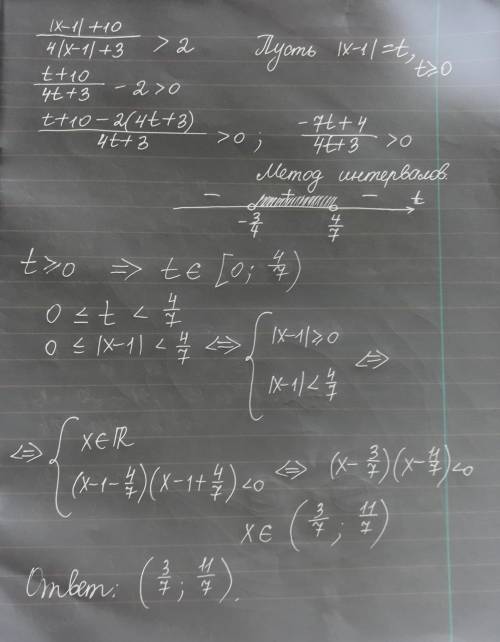 |x-1|+10 / 4|x-1|+3 > 2 Пусть |x-1|=t, t⩾0
t+10 / 4t+3 - 2>0
t+10-2(4t+3) / 4t+3 >0 ; -7t+4 / 4t+3 >0
Метод интервалов.
- + - t
-3/4 4/7
t⩾0 ⇒ t∈ [0; 4/7)
0 ≤ t < 4/7
0 ≤ |x-1| < 4/7 ⇔ { |x-1|⩾0
|x-1|<4/7 ⇔
⇔ { x∈ℝ
(x-1-4/7)(x-1+4/7)<0 ⇔ (x-3/7)(x-11/7)<0
x∈ (3/7; 11/7)
Ответ: (3/7; 11/7).